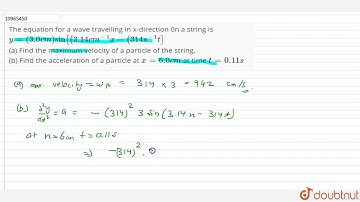 10965450
The equation for a wave travelling in x-direction 0n a string is
y = (3.0cm)sin[(3.14cm⁻¹x − (314s⁻¹t]
(a) Find the maximum velocity of a particle of the string.
(b) Find the acceleration of a particle at x = 6.0cm at time t = 0.11s
(a) max. velocity = wA = 314 × 3 = 942 cm/s.
(b) d²y/dt² = a = −(314)² 3 sin(3.14x − 314t)
at x=6cm t=0.11s
⇒ −(314)².
doubtnut